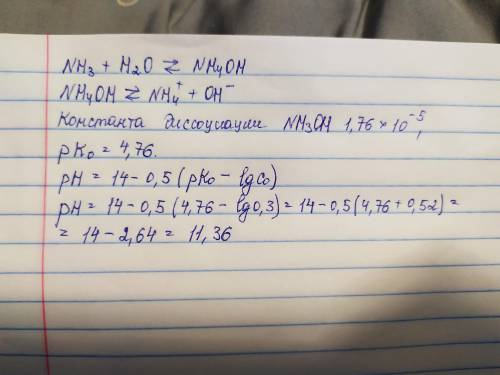 NH₃ + H₂O ⇄ NH₄OH
NH₄OH ⇄ NH₄⁺ + OH⁻
Константа диссоциации NH₃OH 1,76 × 10⁻⁵,
pK₀ = 4,76.
pH = 14 - 0,5 (pK₀ - lgC₀)
pH = 14 - 0,5 (4,76 - lg0,3) = 14 - 0,5 (4,76 + 0,52) =
= 14 - 2,64 = 11,36